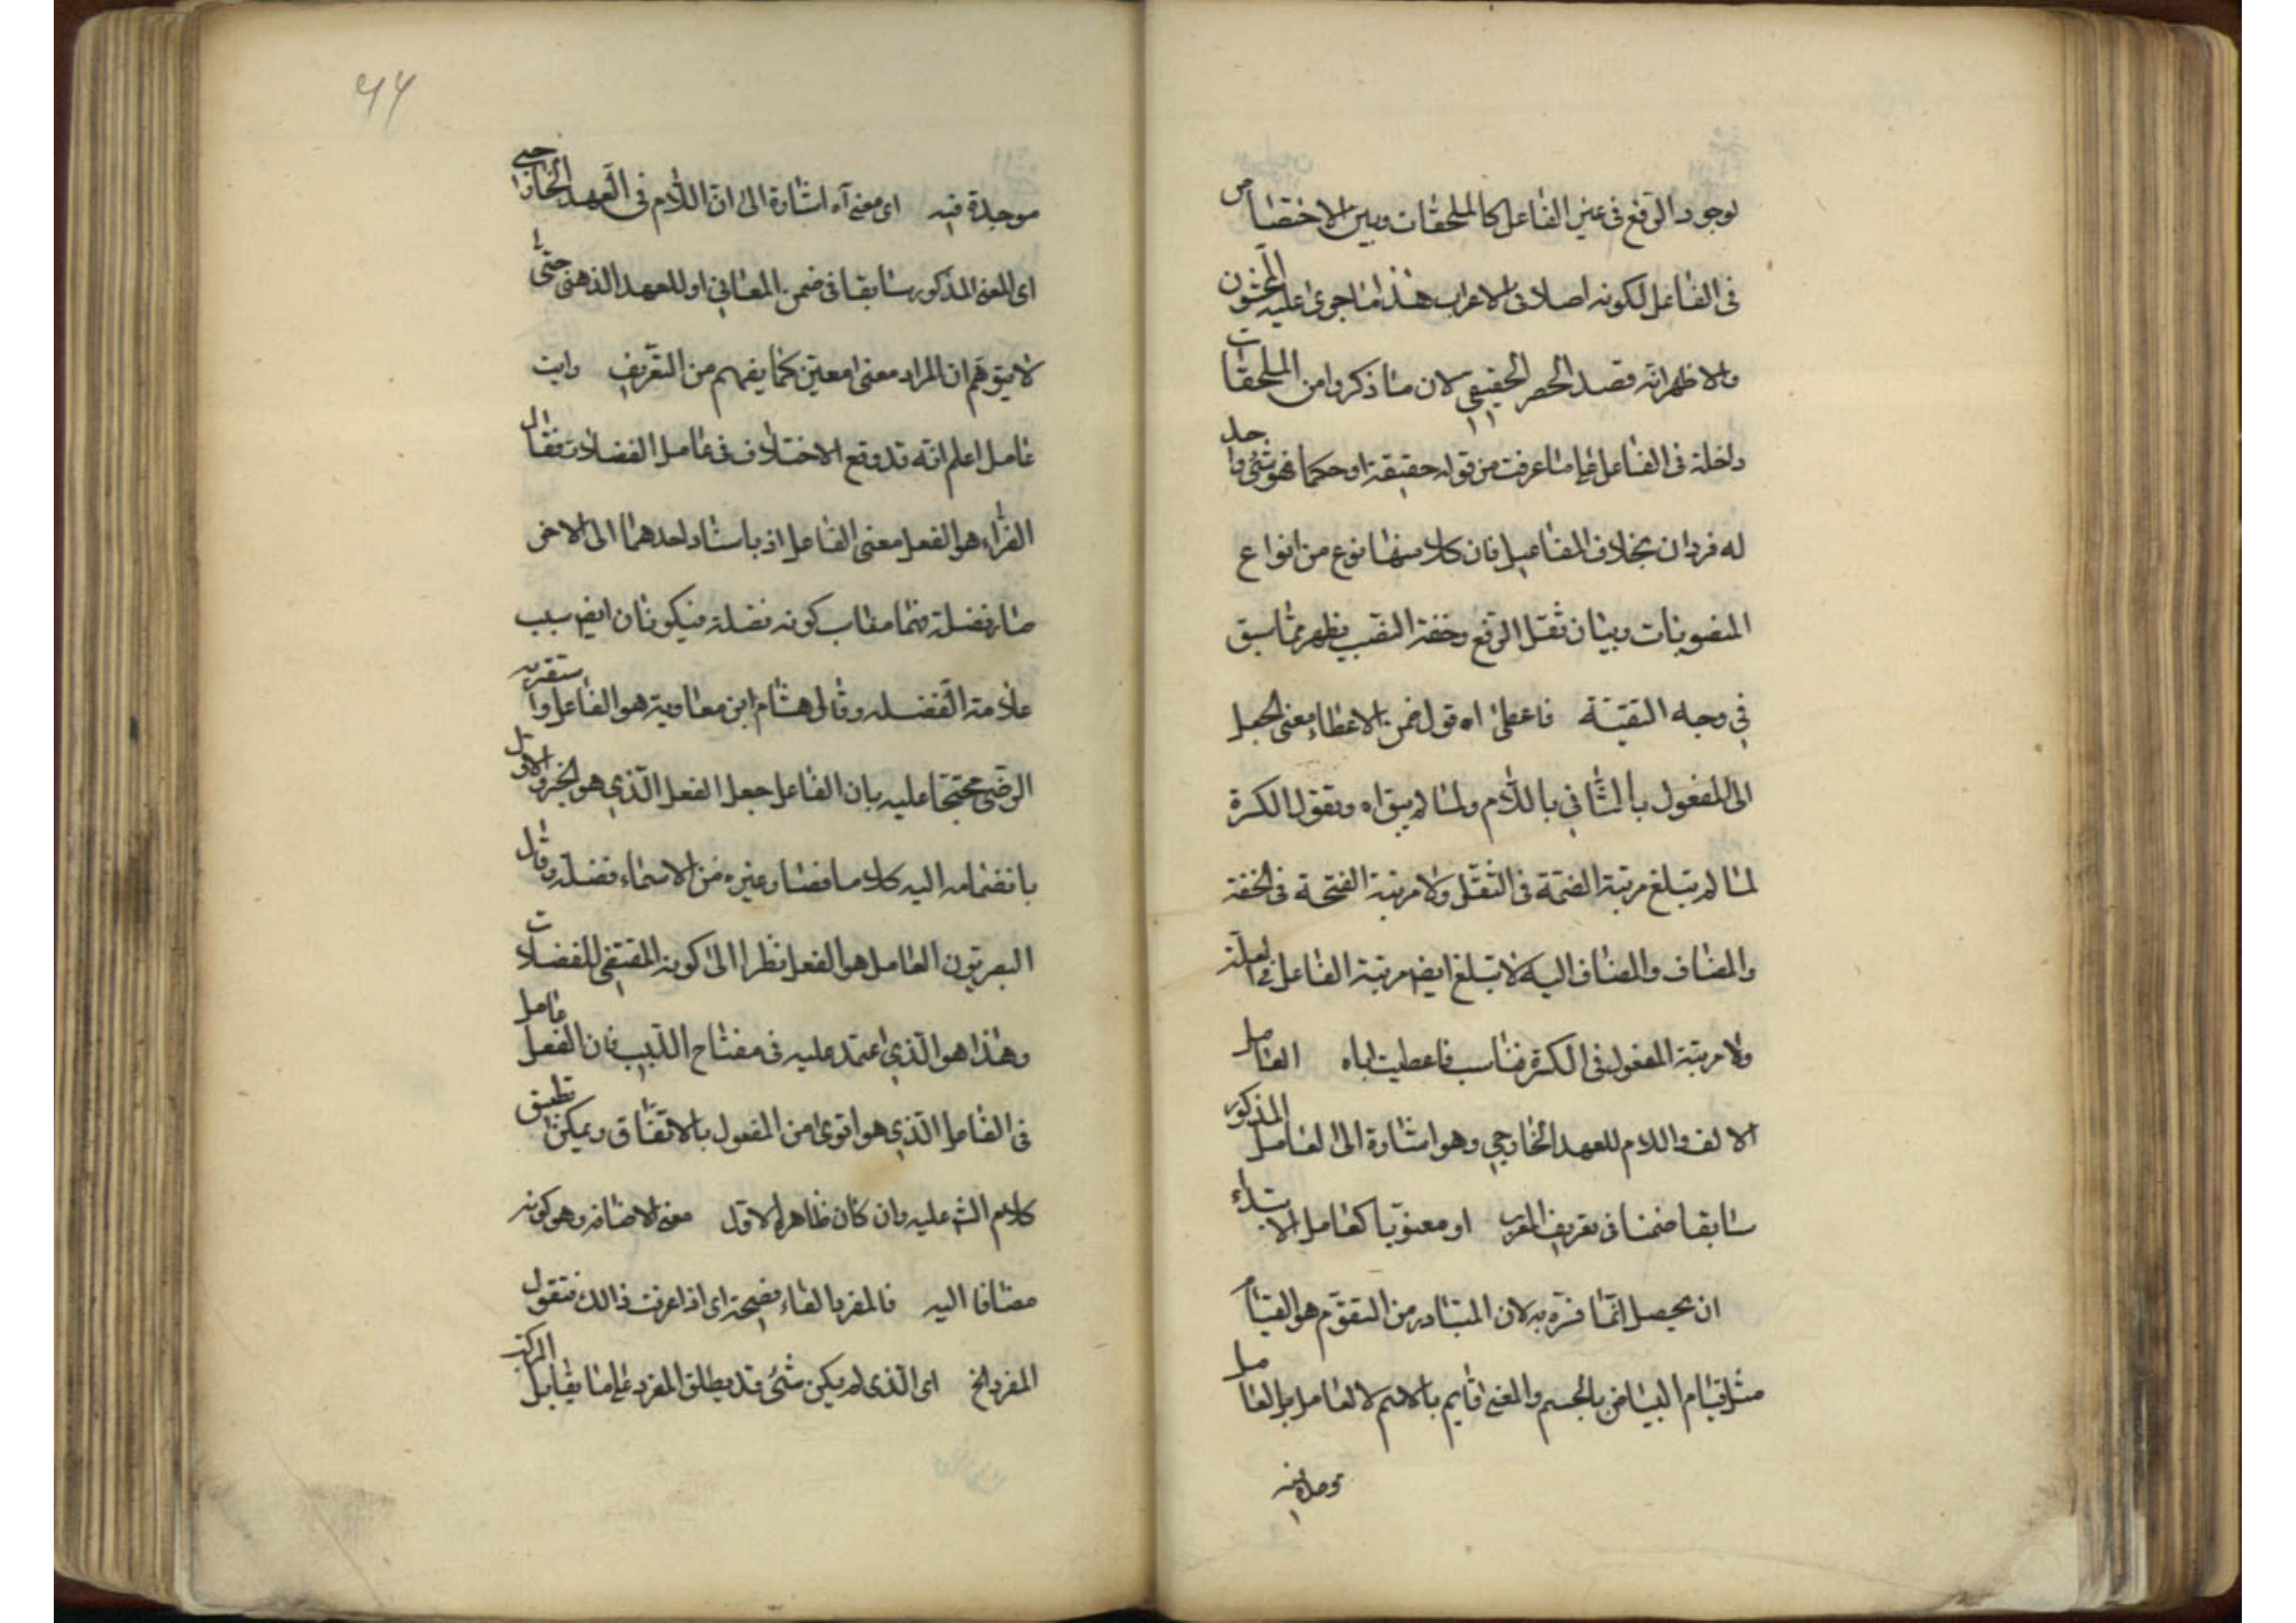 لوجود الرفع فى غير الفاعل كالملحقات وبين الاختصاص
فى الفاعل لكونه اصلا فى الاعراب هذا ما جرى عليه المحشون
والاظهر انه قصد الحصر الحقيقى لان ما ذكروا من الملحقات
داخلة فى الفاعل على ما عرفت من قوله حقيقة او حكما فهو شئ واحد
له فردان بخلاف المفاعيل فان كلا منها نوع من انواع
المنصوبات وبيان ثقل الرفع وخفة النصب يظهر مما سبق
فى وجه التقية فاعطى اه قول ضمن الاعطاء معنى الجعل
الى المفعول بالثانى باللام ولما لم يبق اه ونقول الكسرة
لما لم تبلغ مرتبة الضمة فى الثقل ولا مرتبة الفتحة فى الخفة
والمضاف والمضاف اليه لا تبلغ ايضا مرتبة الفاعل فى القلة
ولا مرتبة المفعول فى الكثرة فناسب فاعطيت اياه العامل
الالف واللام للعهد الخارجى وهو اشارة الى العامل المذكور
سابقا ضمنا فى تعريف المعرب او معنويا كعامل الابتداء
ان يحصل انما فسره به لان المتبادر من التقوم هو القيام
مثل قيام البياض بالجسم والمعنى قايم بالاسم لا العامل بل العامل
موجدة فيه
٩٩
موجدة فيه اى معنى آه اشارة الى ان اللام فى العهد الخارجى
اى المعنى المذكور سابقا فى ضمن المعانى او للعهد الذهنى حتى
لا يتوهم ان المراد معنى معين كما يفهم من التعريف وايت
عامل اعلم انه قد وقع الاختلاف فى عامل الفضلات فقال
الفراء هو الفعل معنى الفاعل اذ باسناد احدهما الى الاخر
صار فضلة فهما سبب كونه فضلة فيكونان ايضا سبب
علامة الفضله وقال هشام ابن معاوية هو الفاعل واستقربه
الرضى محتجا عليه بان الفاعل جعل الفعل الذى هو الجزء الاول
بانضمامه اليه كلاما فصار غيره من الاسماء فضلة وقال
البصريون العامل هو الفعل نظرا الى كونه المقتضى للفضلات
وهذا هو الذى اعتمد عليه فى مفتاح اللبيب فان الفعل عامل
فى الفاعل الذى هو اقوى من المفعول بالاتفاق ويمكن تطبيق
كلام الش عليه وان كان ظاهرا لاول معنى الاضافه وهو كونه
مضافا اليه فالمفرد الفاء فصيحة اى اذا عرفت ذالك فنقول
المفرد الخ اى الذى لم يكن شئ قد يطلق المفرد على ما يقابل المركب